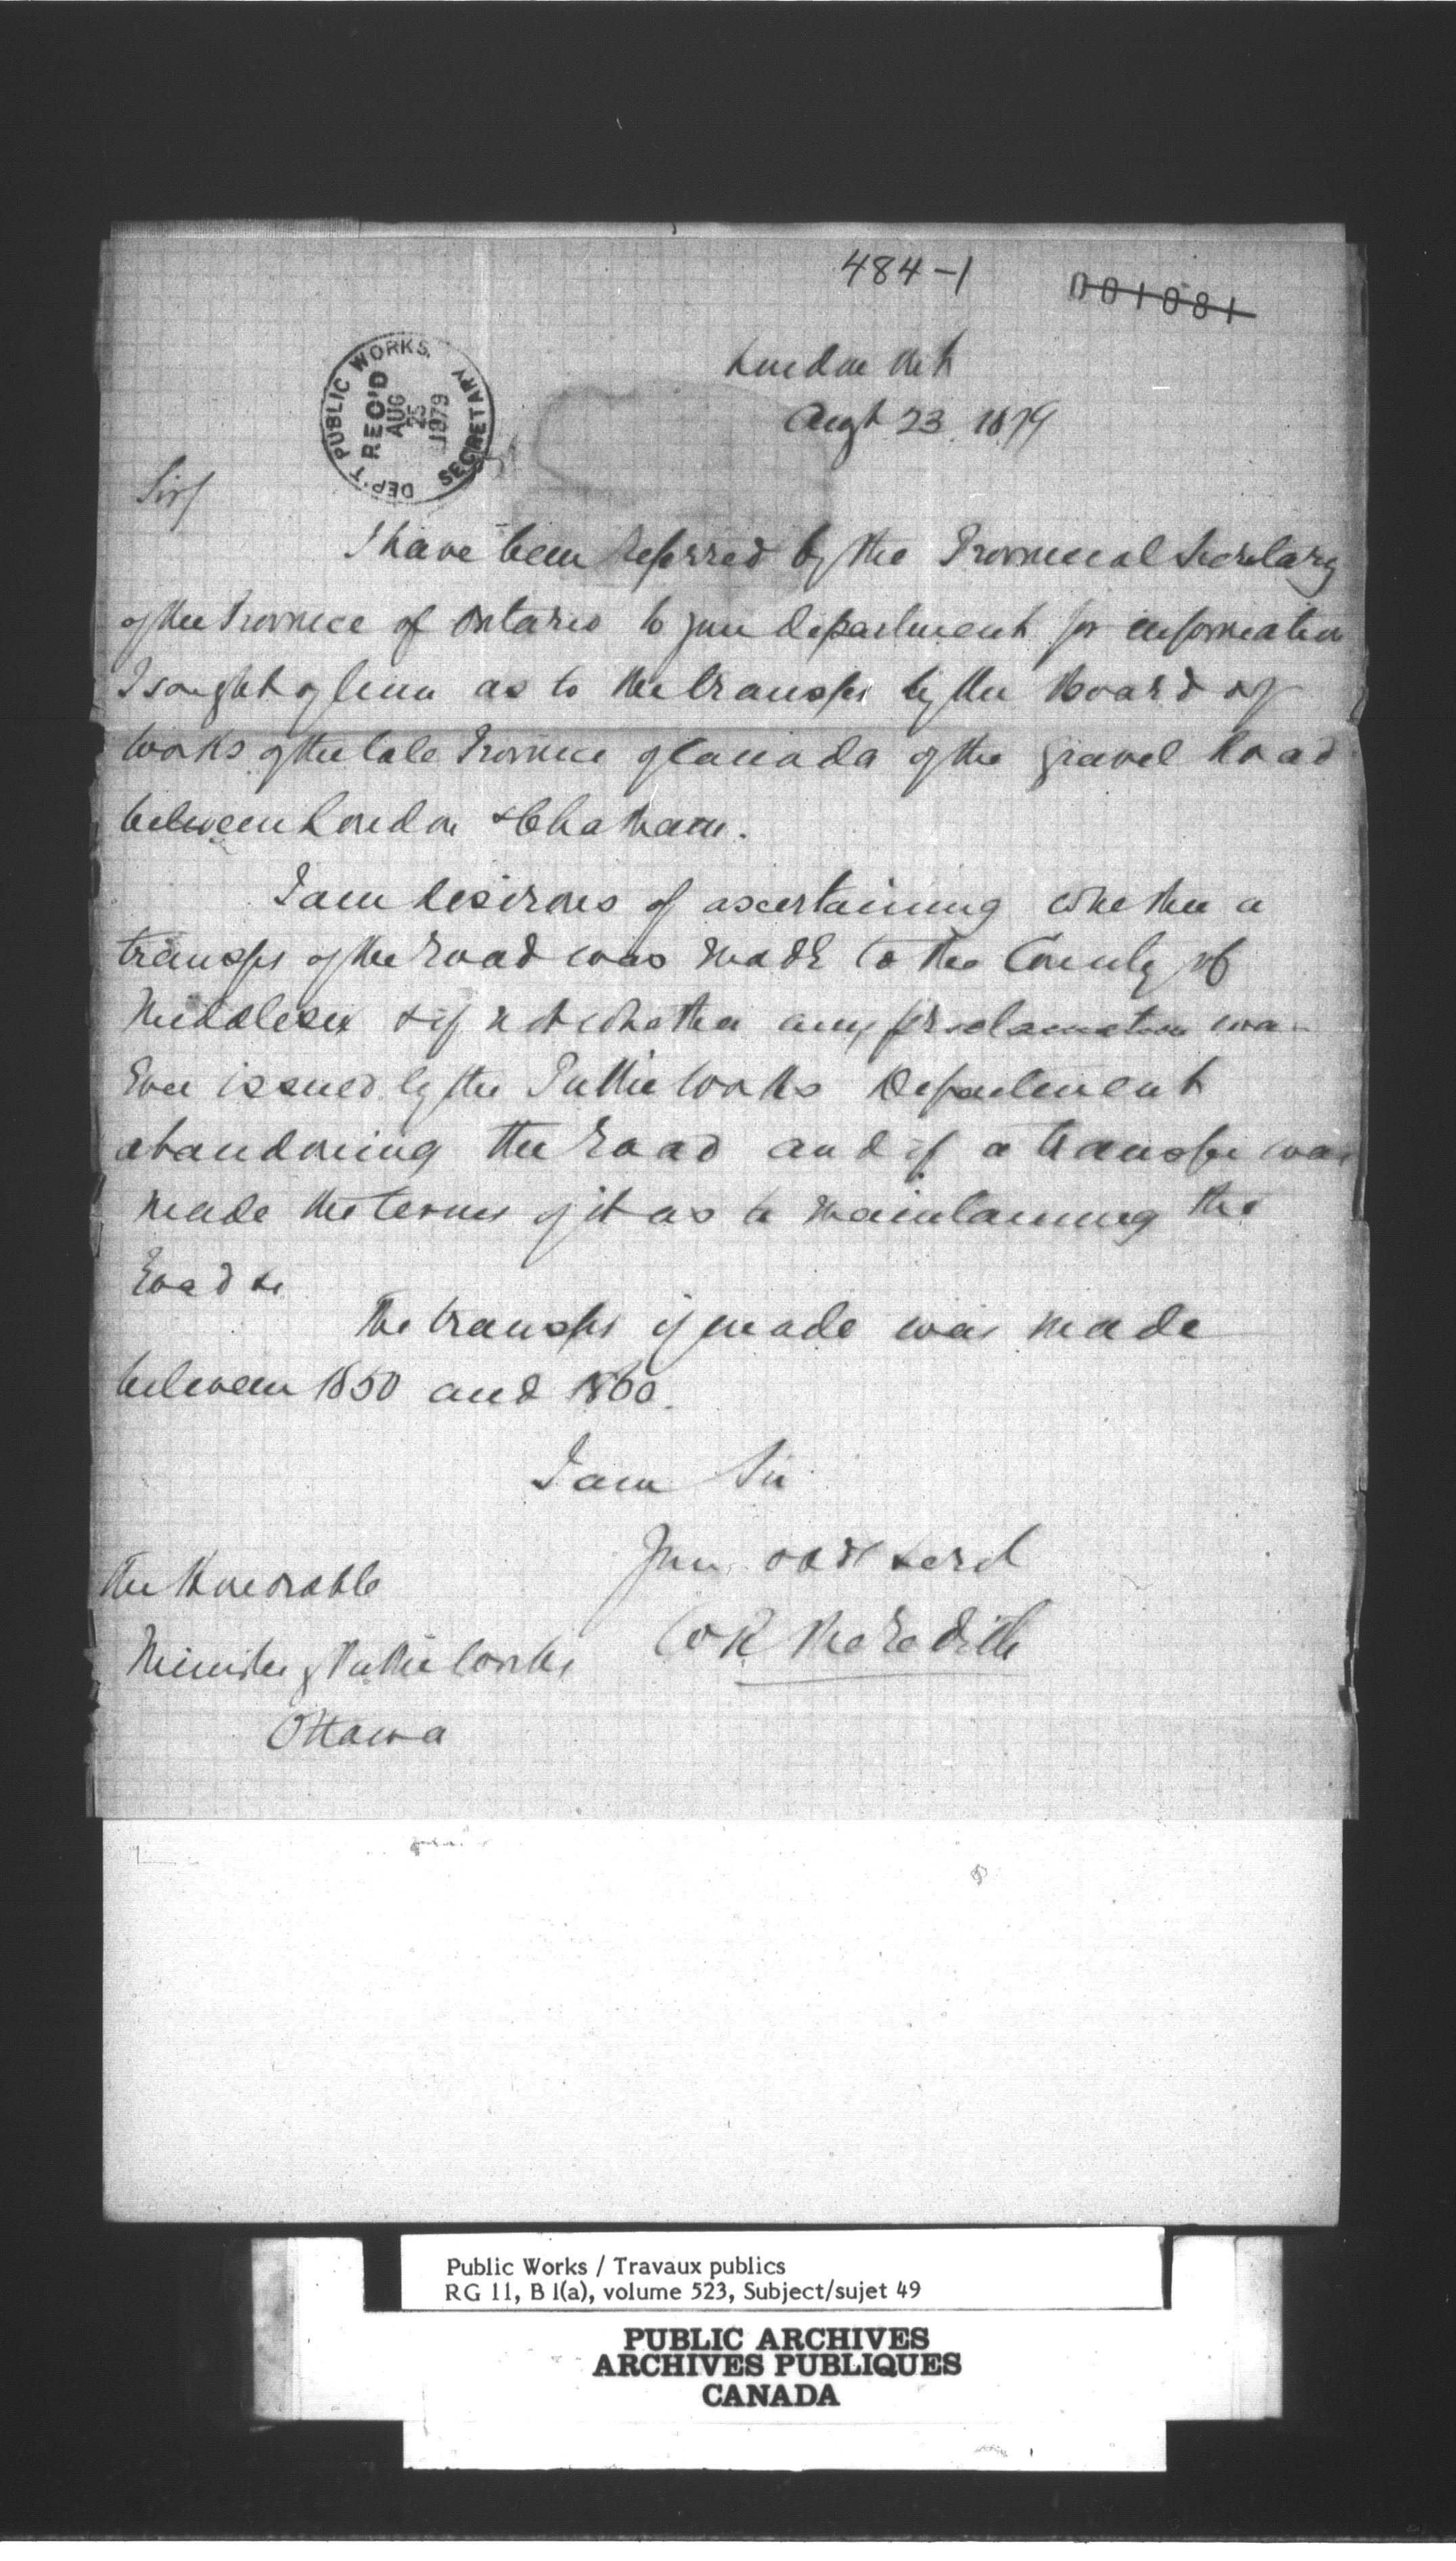 484-1
001081
London Ont
Augt 23. 1879
DEP'T PUBLIC WORKS.
REC'D
AUG
25
1879
SECRETARY
Sir/
I have been referred by the Provincial Secretary
of the Province of Ontario to your department for information
I sought of him as to the transfer by the Board of
Works of the late Province of Canada of the Gravel Road
between London & Chatham.
I am desirous of ascertaining whether a
transfer of the road was made to the County of
Middlesex & if not whether any proclamation was
ever issued by the Public Works Department
abandoning the road and if a transfer was
made the terms of it as to maintaining the
Road &c
The transfer if made was made
between 1850 and 1860.
I am Sir
Your obdt servt
W R Meredith
The Honorable
Minister of Public Works
Ottawa
Public Works / Travaux publics
RG 11, B 1(a), volume 523, Subject/sujet 49
PUBLIC ARCHIVES
ARCHIVES PUBLIQUES
CANADA